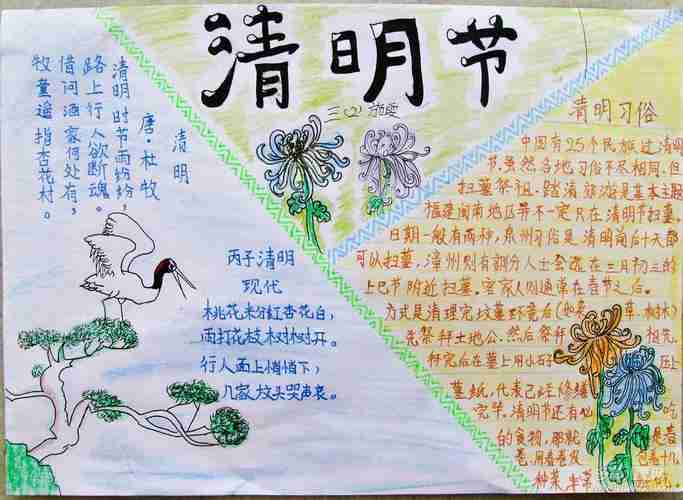 清明节
三(2)
清明
唐·杜牧
清明时节雨纷纷，
路上行人欲断魂。
借问酒家何处有，
牧童遥指杏花村。
丙子清明
现代
桃花未放红杏花白，
雨打花枝树树开。
行人面上悄悄下，
几家坟头哭声哀。
清明习俗
中国有25个民族过清明
节，虽然各地习俗不尽相同，但
扫墓祭祖、踏清旅游是基本主题
福建闽南地区并不一定只在清明节扫墓，
日期一般有两种，泉州习俗是清明前后十天都
可以扫墓，漳州则有部分人士会选在三月初三的
上巳节附近扫墓。客家人则通常在春节之后。
方式是清理完坟墓环境后(如杂草、树木)
先祭拜土地公，然后祭拜祖先。
拜完后在墓上用小石子压上
墓纸，代表已经修缮
完毕。清明节还有吃
的食物，那就是春
卷，用春卷皮包卷十几
种菜